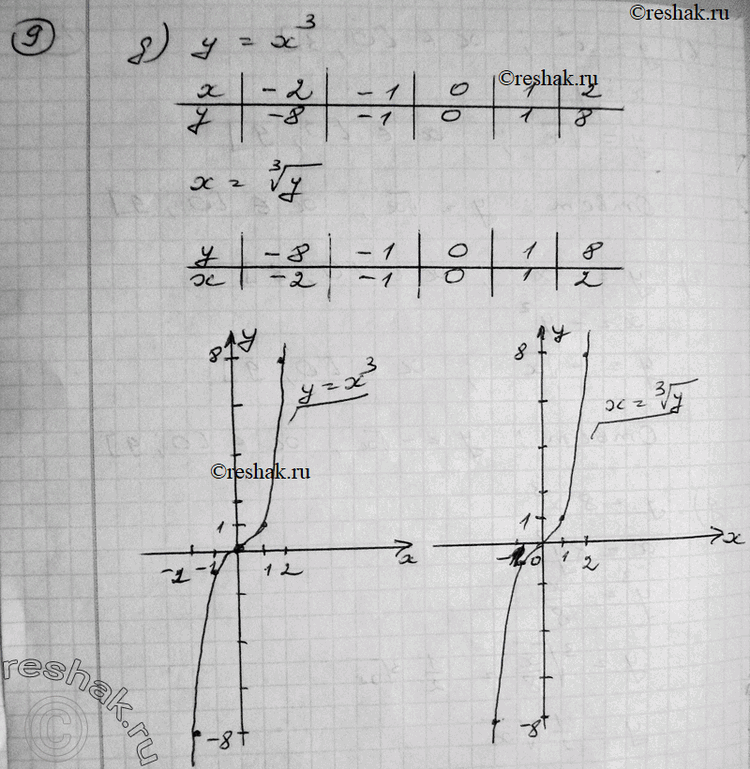 ©reshak.ru
9 б) y = x³
©reshak.ru
x | -2 | -1 | 0 | 1 | 2
y | -8 | -1 | 0 | 1 | 8
x = ∛y
y | -8 | -1 | 0 | 1 | 8
x | -2 | -1 | 0 | 1 | 2
y
8
y = x³
©reshak.ru
1
-2 -1 1 2 x
-8
©reshak.ru
y
8
x = ∛y
1
0 1 2 x
-8
reshak.ru
©